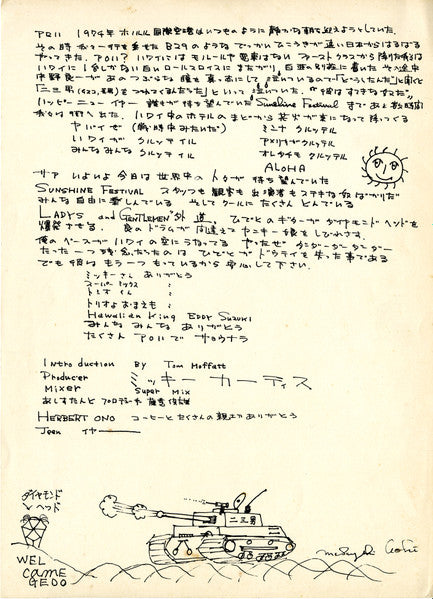 アロハ 1974年 ホノルル国際空港はいつものように静かな朝を迎えようとしていた。
その時 がマーケッを乗せた B29のような でっかいひこうきが遠い日本からはるばる
やってきた。アロハ? ハワイには モノレールや電車はない ファーストクラスから降りた
ハワイに1台しかない白いロールスロイスに またがり、自慢の別荘に着いた その途中
中野良一が あのつぶらな瞳を真っ赤にして 泣いているので「どうしたんだ」と聞くと
「二三男 をつれてくるんだった」といって 泣いていた。
ハッピーニューイヤー 誰もが待ち望んでいた Sunshine Festival まで あと 時間
街へ出た。ハワイ中のホテルのまどから 花火が 降ってくる
ヤバイゼ (戦時中みたいだ) ミンナ クルッテル
ハワイが クルッテイル アメリカが クルッテル
みんなみんな クルッテイル オレタチモ クルッテル
ALOHA
サァ いよいよ 今日は世界中の人々が 待ち望んでいた
SUNSHINE FESTIVAL スタッフも 観客も 出演者も ステキな奴ばかりだ
みんな自由に楽しんでいる そして クールに たくさん とんでいる
LADY'S and GENTLEMEN "外道" ひでとのギターが ダイヤモンドヘッドを
爆発させる. 良のドラムが 間違えて ヤンキー娘を しびれさす.
俺のベースが ハワイの空に うなってる やったぜ ダンダーダーダンダー
たった一つ残念だったのは ひでとが を失った事である
でも 俺は もう一つもっているから 安心して下さい.
ミッキーさん ありがとう
スーパーミックス :
トミオくん :
トリオよ おまえも :
Hawaiian King EDDY SUZUKI
みんな みんな ありがとう
たくさん アロハで サヨウナラ
Introduction BY Tom Moffatt
Producer ミッキー カーティス
Mixer Super Mix
あしすたんと プロデューサー
HERBERT ONO コーヒーとたくさんの親切 ありがとう
Jeen イヤー
ダイヤモンド
ヘッド
二三男
WEL
CAME
GEDO